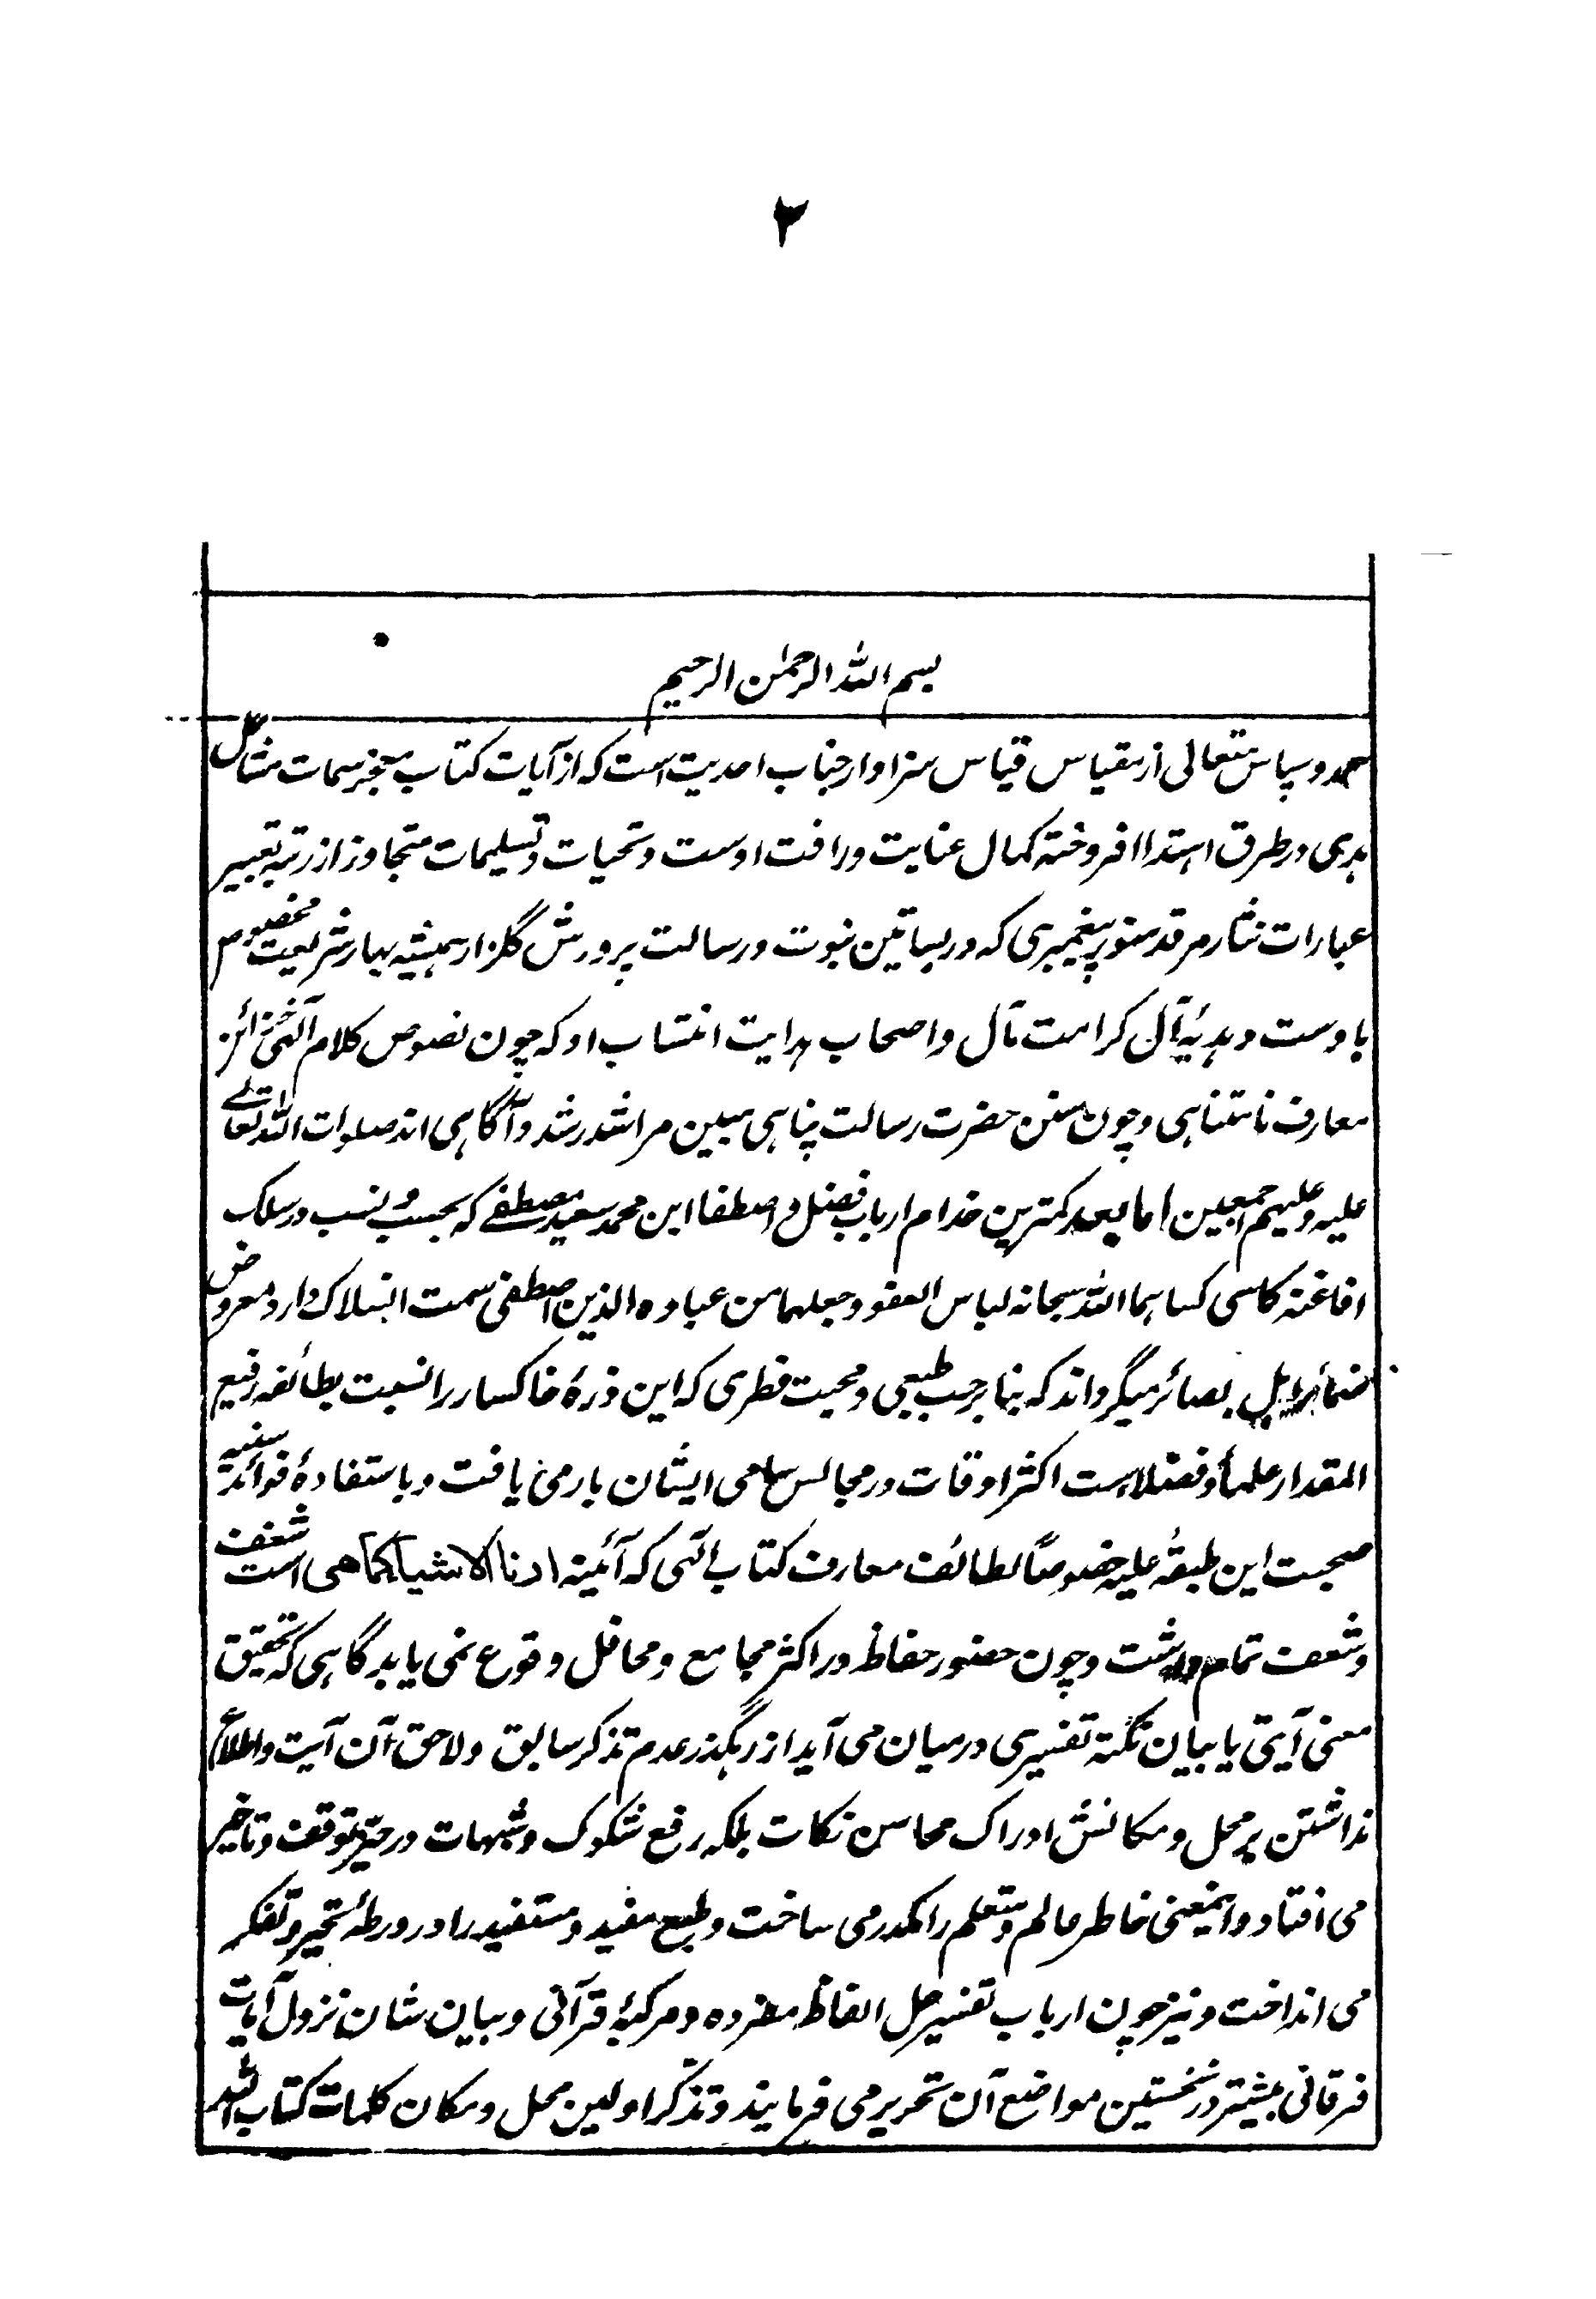 ۲
بسم الله الرحمن الرحیم
حمد و سپاس متعالی از مقیاس قیاس سزاوار جناب احدیت است که از آیات کتاب معجز سمات مشاعل
هدی در طرق اهتدا افروخته کمال عنایت و رافت اوست و تحیات و تسلیمات متجاوز از رتبه تعبیر
عبارات نثار مرقد منور پیغمبری که در بساتین نبوت و رسالت پرورش گلزار همیشه بهار شریعت مخصوص
باوست و هدیهٔ آل کرامت مآل و اصحاب هدایت انتساب او که چون نصوص کلام الٓهی خزائن
معارف نامتناهی و چون سنن حضرت رسالت پناهی مبین مراشد رشد و آگاهی اند صلوات الله تعالے
علیه و علیهم اجمعین اما بعد کمترین خدام ارباب فضل و اصطفا ابن محمد سعید مصطفے که بحسب و نسب در سلک
افاغنه کاسی کساهما الله سبحانه لباس العفو و جعلهما من عباده الذین اصطفی سمت انسلاک دارد معروض
ضمائر اهل بصائر میگرداند که بنابر حب طبیعی و محبت فطری که این ذرهٔ خاکسار را نسبت بطائفه رفیع
المقدار علما و فضلا است اکثر اوقات در مجالس سامی ایشان بار می یافت و باستفادهٔ فوائد سنیه
صحبت این طبقهٔ علیه خصوصاً لطائف معارف کتاب الٓهی که آئینه ارنا الاشیا کماهی است شغف
و شعف تمام داشت و چون حضور حفاظ در اکثر مجامع و محافل وقوع نمی یابد گاهی که تحقیق
معنی آیتی یا بیان نکتهٔ تفسیری در میان می آید از رهگذر عدم تذکر سابق و لاحق آن آیت و اطلاع
نداشتن بر محل و مکانش ادراک محاسن نکات بلکه رفع شکوک و شبهات در حیّز توقف و تاخیر
می افتاد و اینمعنی خاطر عالم و متعلم را مکدر می ساخت و طبع مفید و مستفید را در ورطهٔ تحیر و تفکر
می انداخت و نیز چون ارباب تفسیر حل الفاظ مفرده و مرکبهٔ قرآنی و بیان شان نزول آیات
فرقانی بیشتر در نخستین مواضع آن تحریر می فرمایند و تذکر اولین محل و مکان کلمات کتاب الله